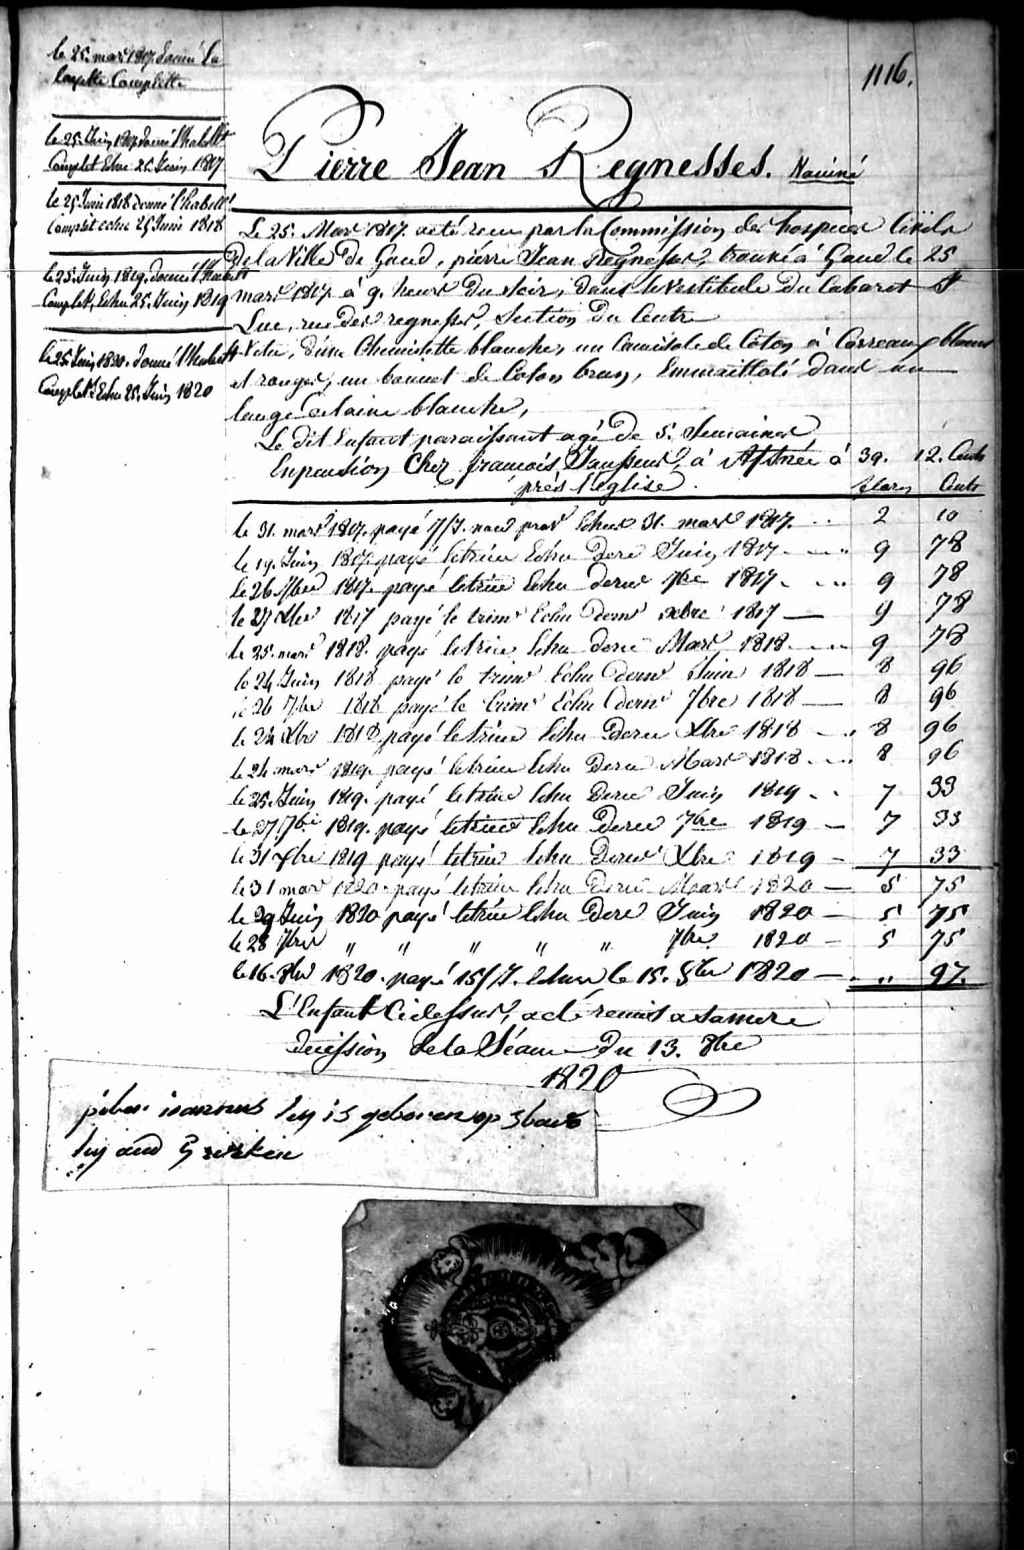 1116.
le 25. mars 1817. donné la
layette Complette
le 25. Juin 1817 donné l'habillt
Complet Echu 25 Juin 1817
le 25 Juin 1818 donné l'habillt
Complet echu 25 Juin 1818
le 25. Juin 1819. donné l'habillt
Complet, Echu 25. Juin 1819
le 25 Juin 1820. donné l'habillt
Complet Echu 25. Juin 1820
Pierre Jean Regnesses. Vacciné
Le 25. Mars 1817. a été recu par la Commission des hospices Civils
De la Ville De Gand, pierre Jean Regnesses, trouvé à Gand le 25
mars 1817 à 9. heures Du Soir, dans le Vestibule du Cabaret St
Luc, rue Des regnesses, Section Du Centre
Vetu, d'une Chemisette blanche, un Camisole de Coton à Carreaux blancs
et rouges, un bonnet de Coton brun, Emmaillotté dans un
lange de laine blanche,
Le dit Enfant paraissant agé De 5. Semaines
En pension Chez francois à à 39. 12. Cents
près l'Eglise. Cents
le 31. mars 1817. payé 7/J. Echus 31. mars 1817. .. 2 10
le 19. Juin 1817. payé le trim Echu dere Juin 1817. 9 78
le 26 7bre 1817. payé le trim Echu derne 7bre 1817. 9 78
le 27 Xbre 1817 payé le trimre Echu derne Xbre 1817 — 9 78
le 25. mars 1818. payé le trim Echu derne Mars 1818. 9 78
le 24 Juin 1818 payé le trimre Echu derne Juin 1818 — 8 96
le 26 7bre 1818 payé le trimre Echu derne 7bre 1818 — 8 96
le 24 Xbre 1818 payé le trim Echu Derne Xbre 1818 — 8 96
le 24. mars 1819. payé le trim Echu Derne Mars 1818. 8 96
le 25. Juin 1819. payé le trim Echu Derne Juin 1819 .. 7 33
le 27 7bre 1819. payé le trim Echu Derne 7bre 1819 — 7 33
le 31 Xbre 1819 payé le trim Echu Derne Xbre 1819 — 7 33
le 31 mars 1820. payé le trim Echu Derne Mars 1820 — 5 75
le 29 Juin 1820 payé le trim Echu Dere Juin 1820 — 5 75
le 28 7bre " " " " " 7bre 1820 — 5 75
le 16. 8bre 1820. payé 15/J. Echus le 15. 8bre 1820 — .. 97.
L'Enfant Cidessus, a été remis a sa mere
Decission de la Séance Du 13. 8bre
1820
is geboren op